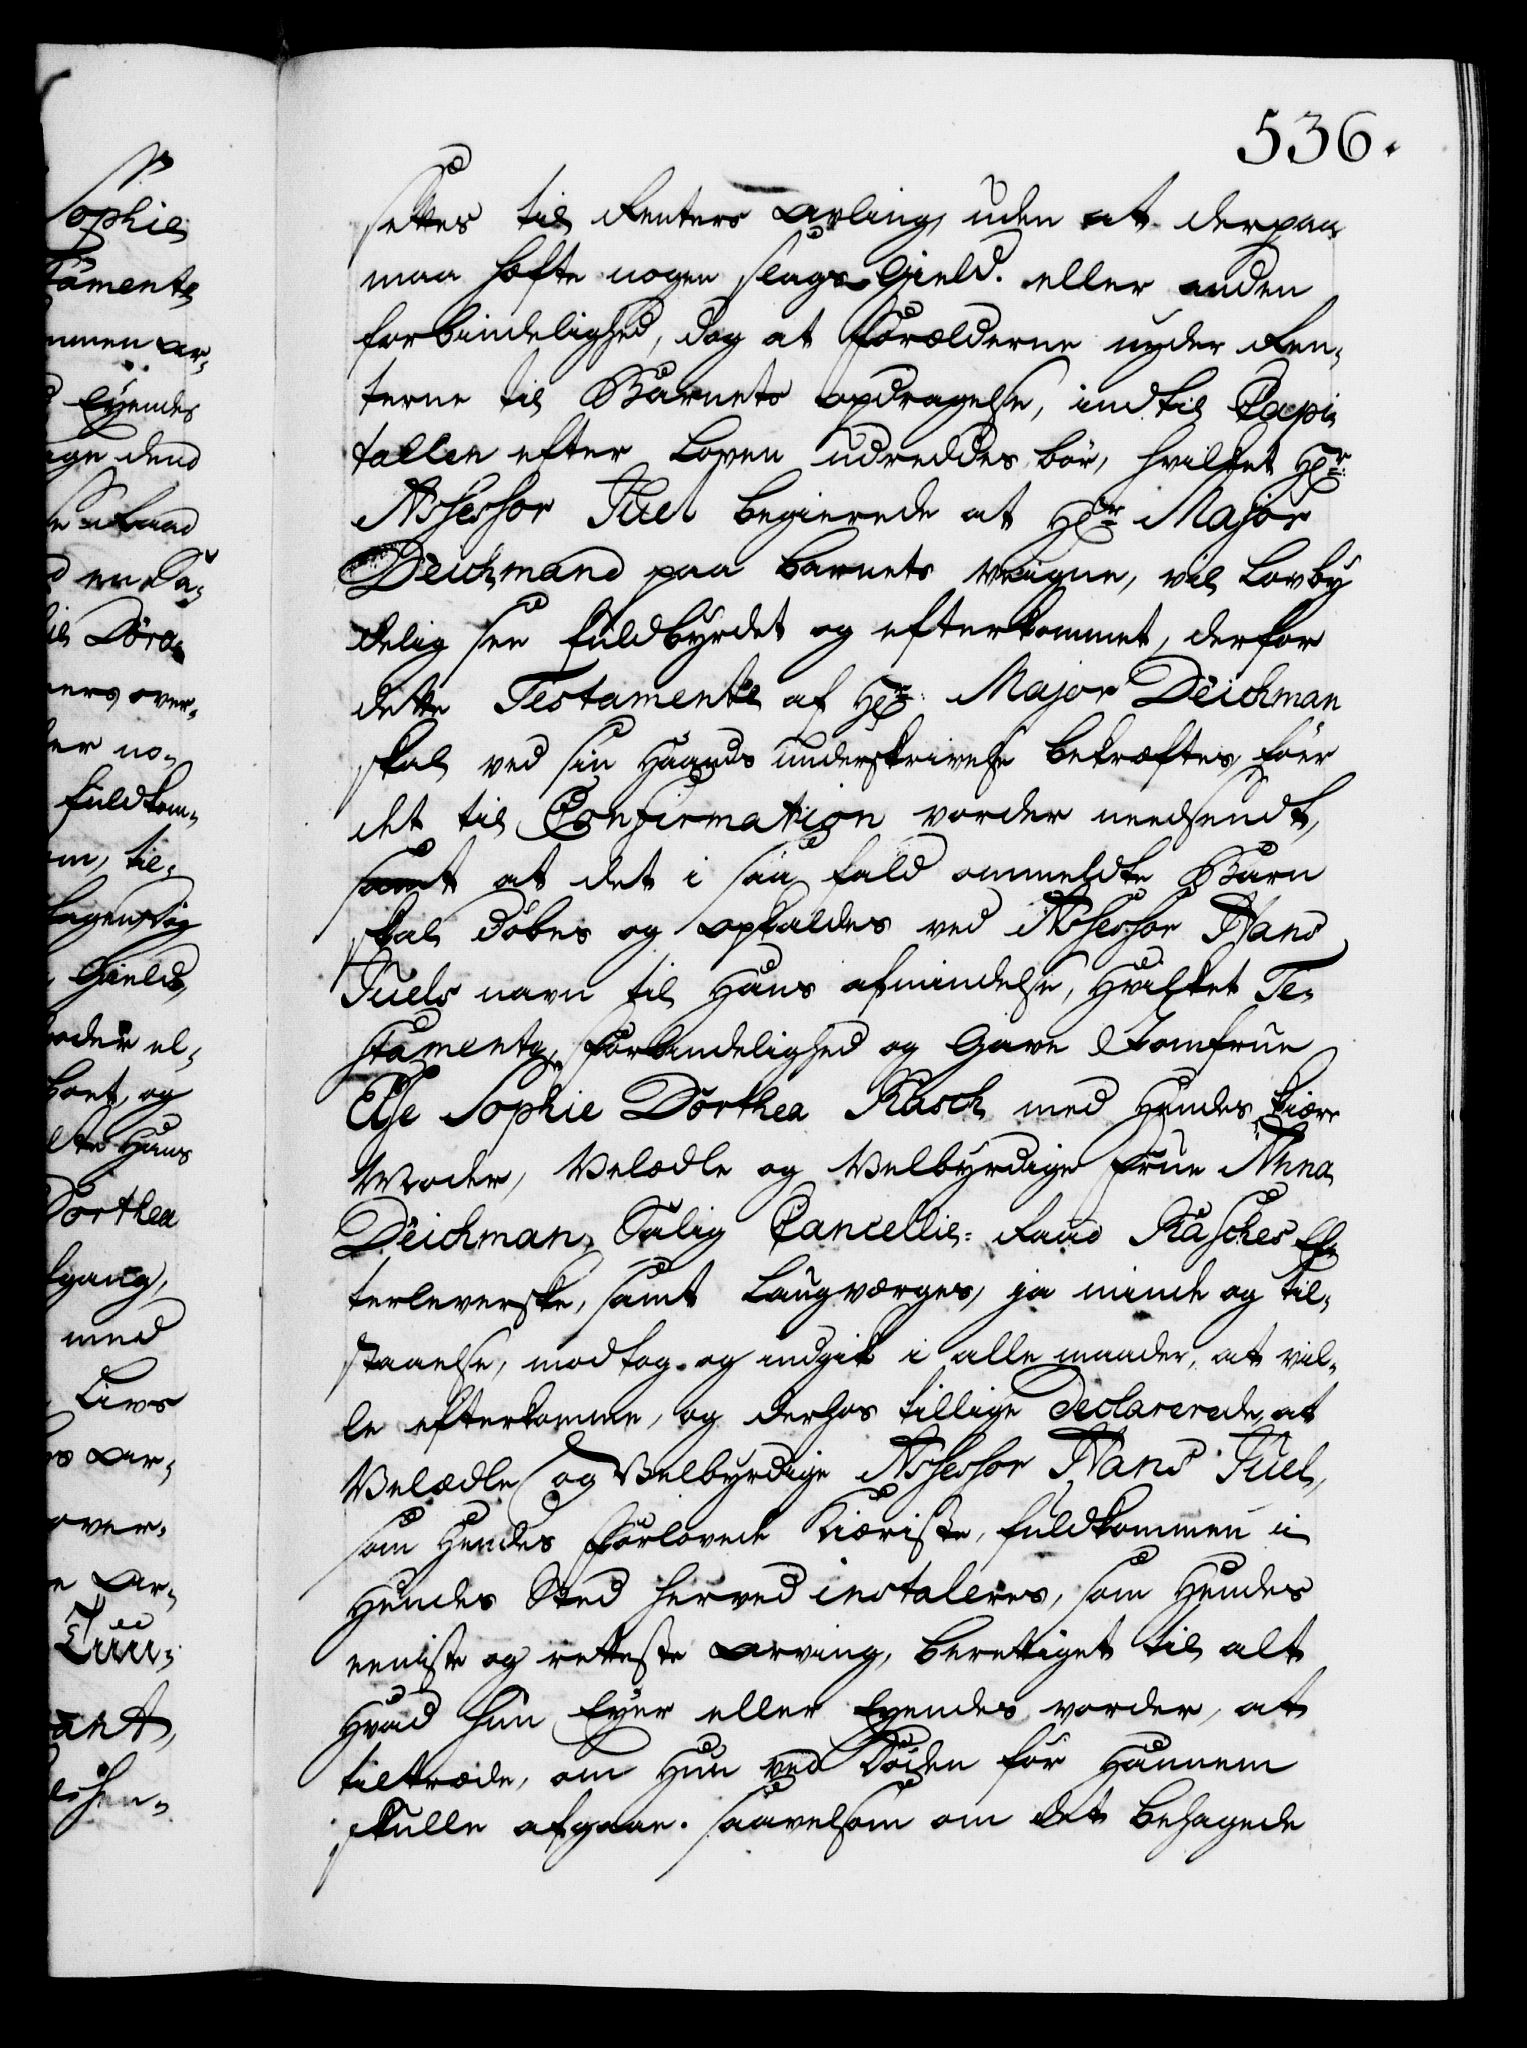 536.
settes til Renters avling, uden at derpaa
maa hæfte nogen slags Gield. eller anden
forbindelighed, dog at Forælderne nyder Ren-
terne til Barnets opdragelse, indtil Capi-
tallen efter Loven udreddes bør, hvilket Hr:
Assessor Juel begierede at Hr: Major
Deichmand paa barnets veigne, vil Lovby
delig see fuldbyrdet og efterkommet, derfor
dette Testamente af Hr: Major Deichman
skal ved sin Haands underskrivelse bekræftes, før
det til Confirmation vorder needsendt,
samt at det i saa fald ommeldte Barn
skal døbes og opkaldes ved Assessor Hans
Juels navn til Hans afmindelse, Hvilket Te-
stamente, forbindelighed og Gave Jomfrue
Else Sophie Dorthea Rasch med Hendes kiære
Moder, Velædle og Velbyrdige Frue Anna
Deichman, Salig Cancellie-Raad Rasches Ef-
terleverske, samt Laugværges, ja minde og til-
staaelse, modtog og indgik i alle maader, at vil-
le efterkomme, og derhos tillige declarerede, at
Velædle og Velbyrdige Assessor Hans Juel,
som Hendes Forlovede Kiæriste, fuldkommen i
Hendes Sted herved instaleres, som Hendes
eeniste og retteste Arving, berettiget til alt
Hvad hun Eyer eller Eyendes vorder, at
tiltræde, om Hun ved Døden før Hannem
skulle afgaae. saavelsom om det behagede
Sophie
ommen ar-
Eyendes
dend
Raad
over-
no-
fuldkom-
til-
Gield,
el-
og
Hans
Dorthea
med
Livs
ar-
over-
ar-
hen-